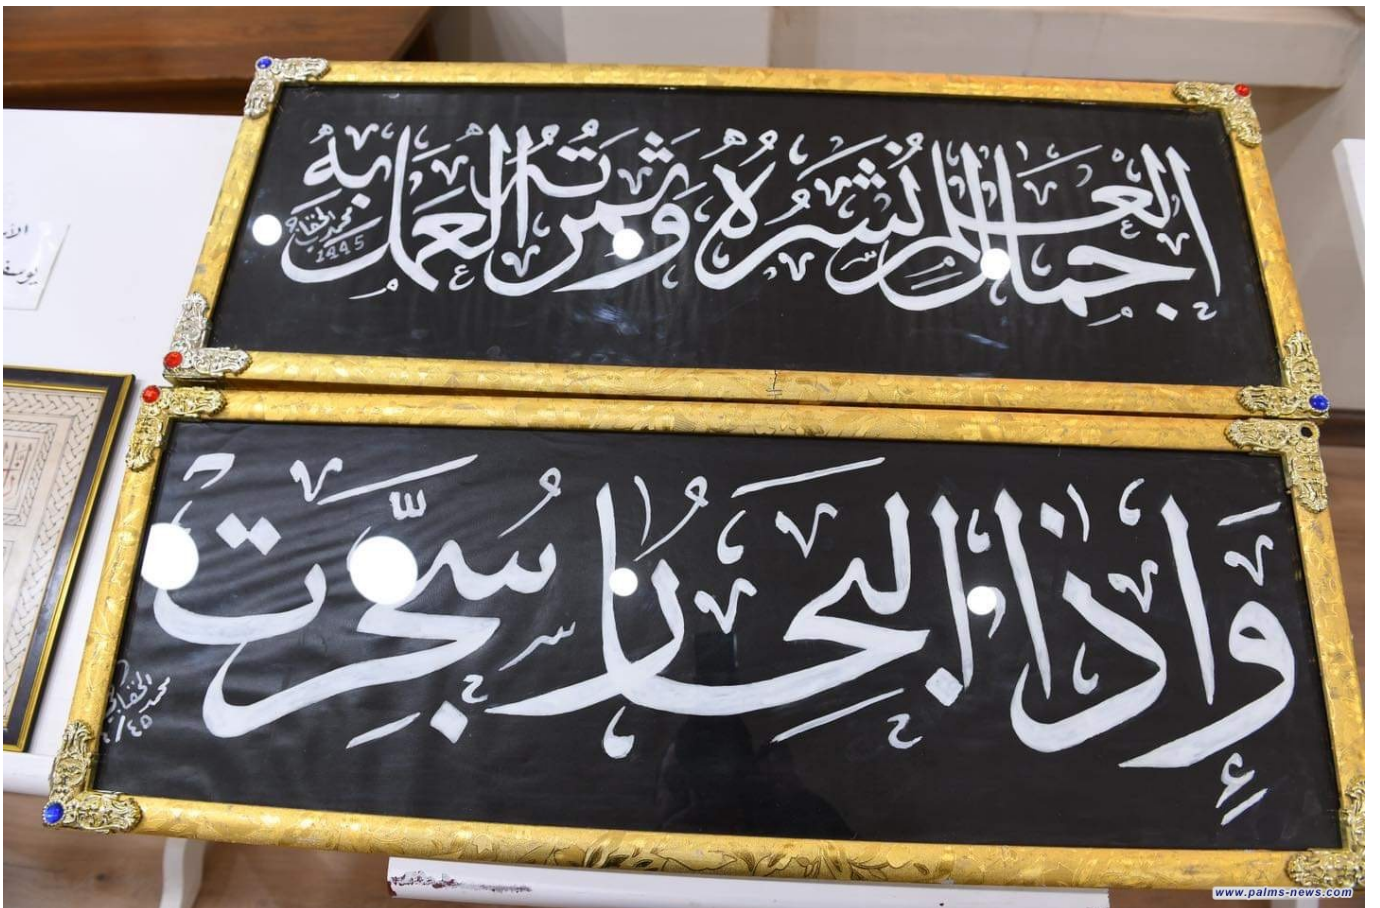 جمال العلم نشره وثمرته العمل به
محمد الخفاجي
1445
وإذا البحار سجرت
محمد الخفاجي
www.palms-news.com